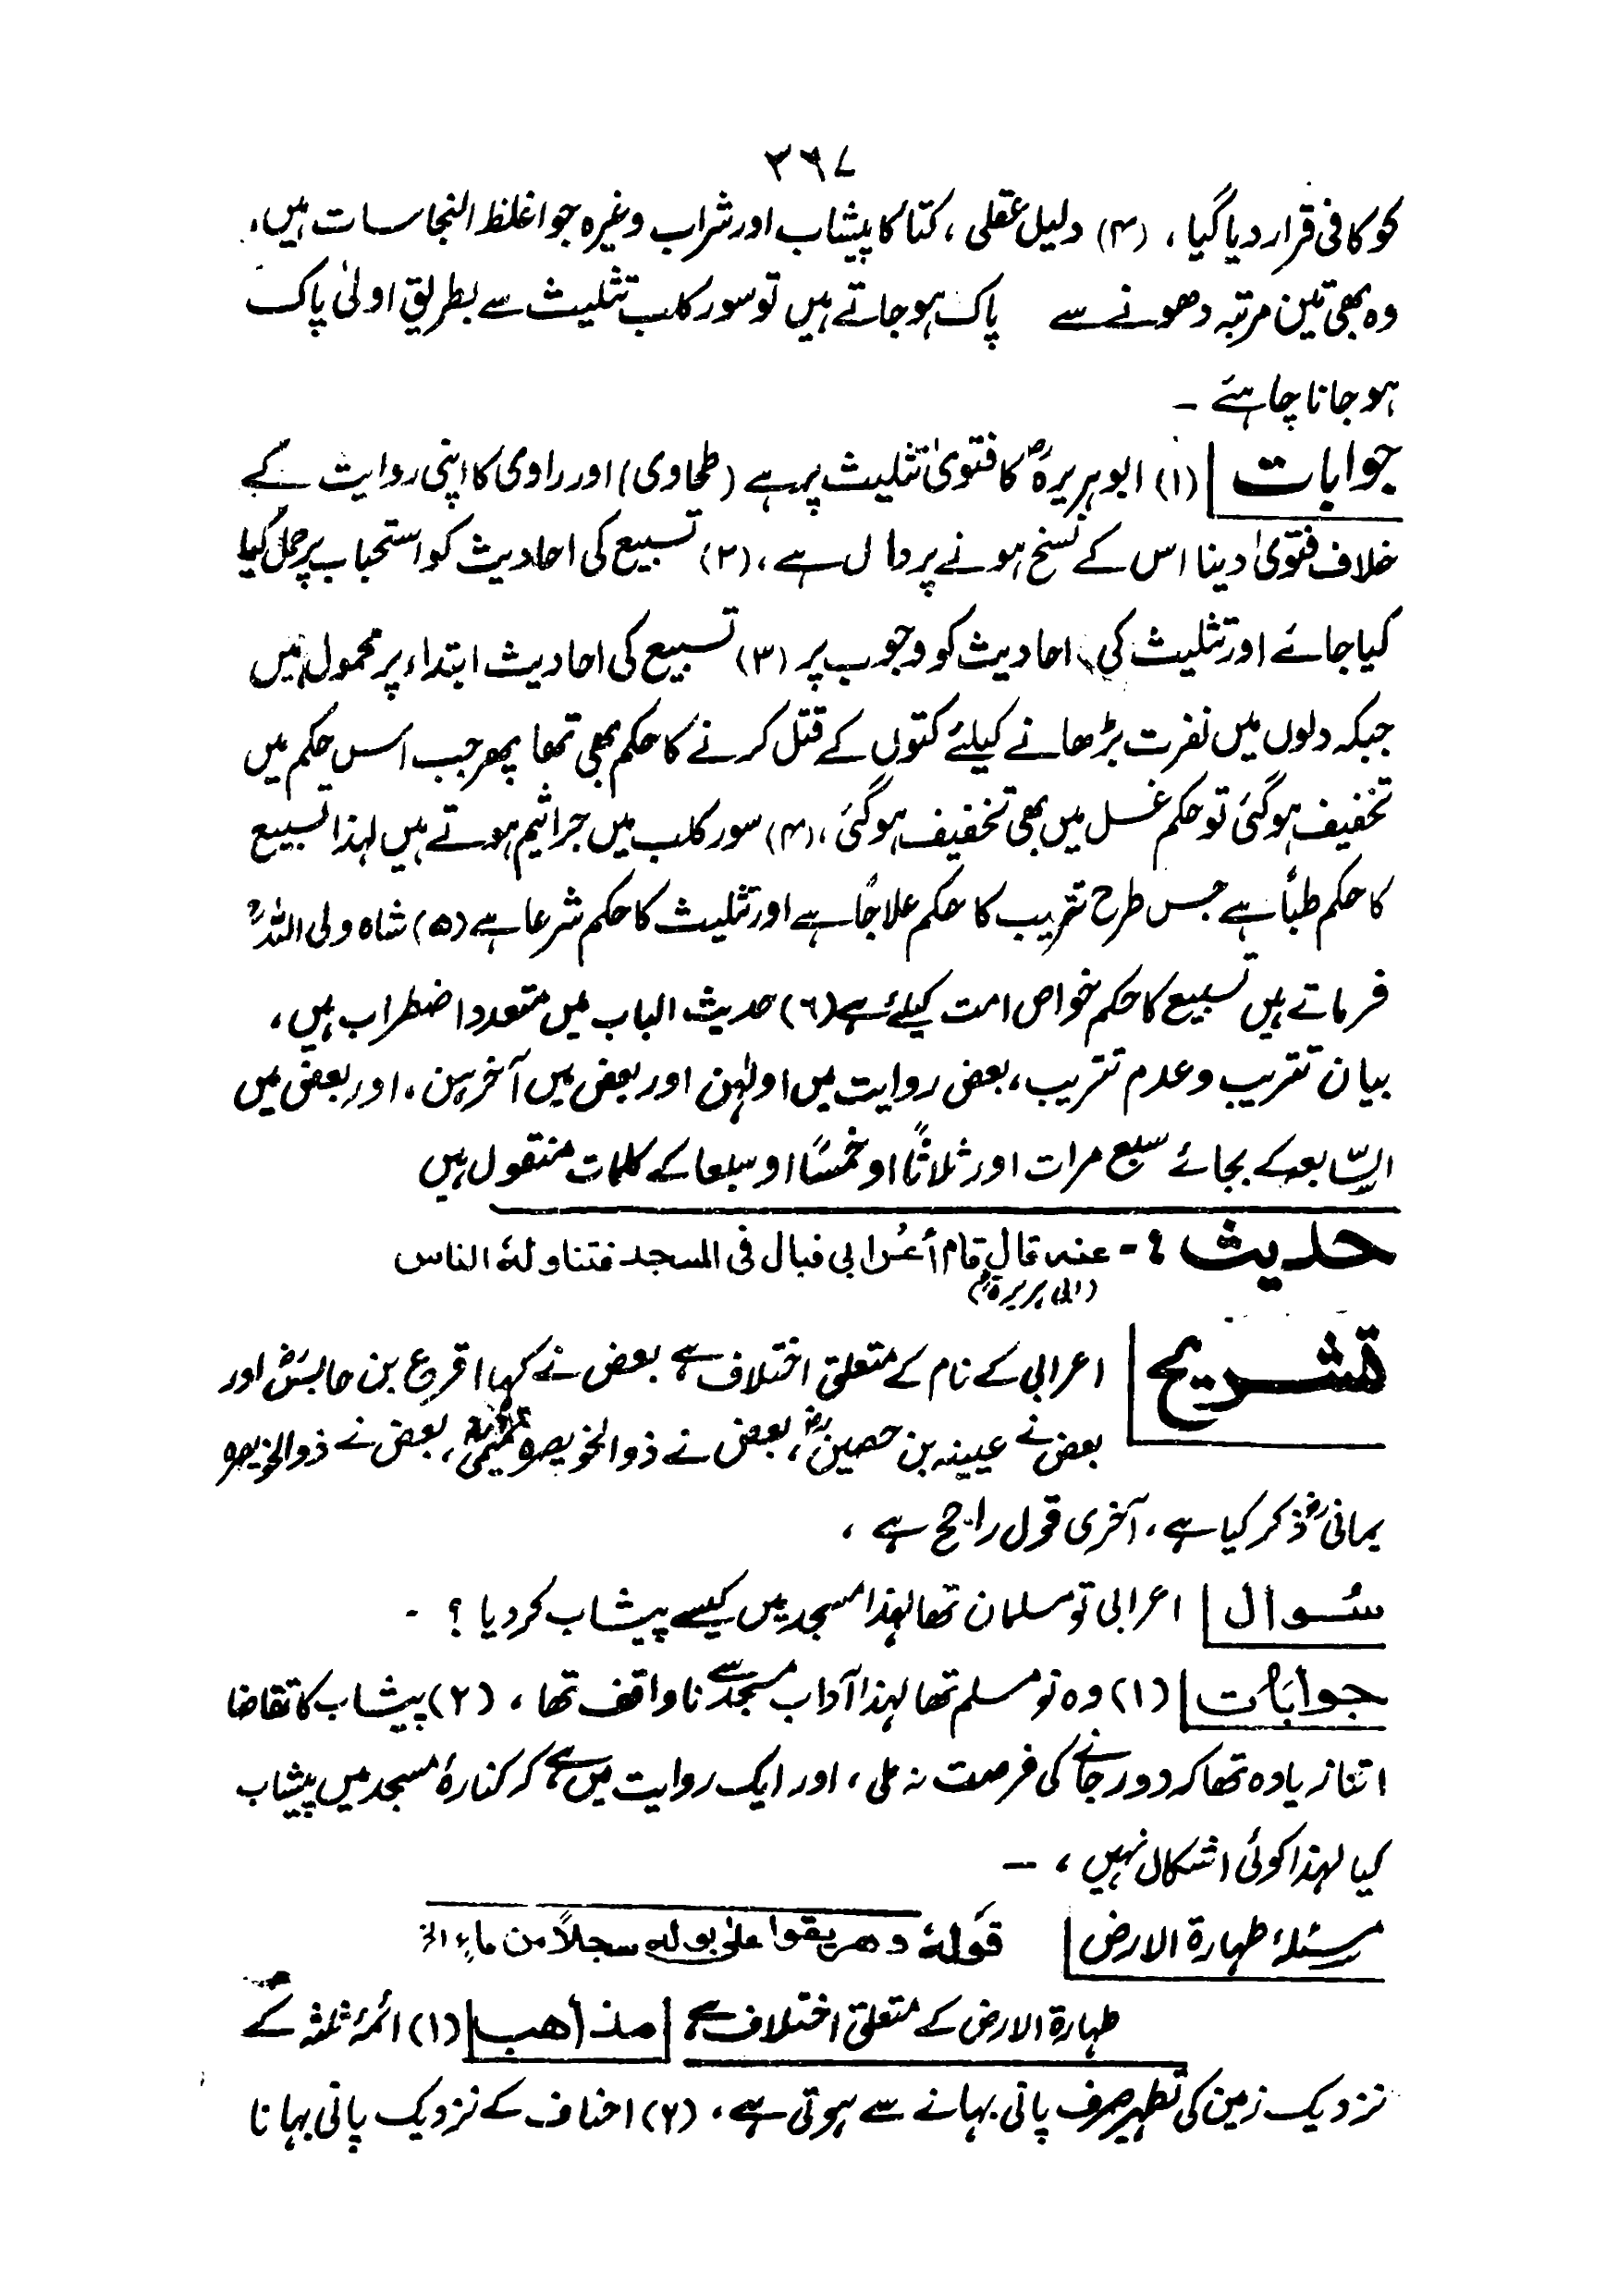 ۳۶۷
کو کافی قرار دیا گیا ، (۴) دلیل عقلی ، کتا کا پیشاب اور شراب وغیرہ جو اغلظ النجاسات ہیں،
وہ بھی تین مرتبہ دھونے سے پاک ہو جاتے ہیں تو سور کلب تثلیث سے بطریق اولیٰ پاک
ہو جانا چاہئے ۔
جوابات (۱) ابو ہریرہؓ کا فتویٰ تثلیث پر ہے (طحاوی) اور راوی کا اپنی روایت کے
خلاف فتویٰ دینا اس کے نسخ ہونے پر دال ہے، (۲) تسبیع کی احادیث کو استحباب پر حمل کیا
کیا جائے اور تثلیث کی احادیث کو وجوب پر (۳) تسبیع کی احادیث ابتداء پر محمول ہیں
جبکہ دلوں میں نفرت بڑھانے کیلئے کتوں کے قتل کرنے کا حکم بھی تھا پھر جب اس حکم میں
تخفیف ہو گئی تو حکم غسل میں بھی تخفیف ہو گئی ، (۴) سور کلب میں جراثیم ہوتے ہیں لہذا تسبیع
کا حکم طباً ہے جس طرح تتریب کا حکم علاجاً ہے اور تثلیث کا حکم شرعا ہے (۵) شاہ ولی اللہؒ
فرماتے ہیں تسبیع کا حکم خواص امت کیلئے ہے (۶) حدیث الباب میں متعدد اضطراب ہیں ،
بیان تتریب وعدم تتریب ، بعض روایت میں اولٰہن اور بعض میں آخرہن ، اور بعض میں
السّابعہ کے بجائے سبع مرات اور ثلاثًا او خمسًا او سبعا کے کلمات منقول ہیں
حدیث :- عنہ قال قام أعرابی فبال فی المسجد فتناولہٗ الناس
(ابی ہریرۃؓ)
تشریح اعرابی کے نام کے متعلق اختلاف ہے بعض نے کہا اقرع بن حابسؓ اور
بعض نے عیینہ بن حصینؓ ، بعض نے ذوالخویصرہ تمیمی ، بعض نے ذوالخویصرہ
یمانیؓ ذکر کیا ہے ، آخری قول راجح ہے ،
سُوال اعرابی تو مسلمان تھا لہذا مسجد میں کیسے پیشاب کر دیا ؟ ۔
جوابات (۱) وہ نو مسلم تھا لہذا آداب مسجد سے ناواقف تھا ، (۲) پیشاب کا تقاضا
اتنا زیادہ تھا کہ دور جانے کی فرصت نہ ملی ، اور ایک روایت میں ہے کہ کنارۂ مسجد میں پیشاب
کیا لہذا کوئی اشکال نہیں ، —
مسئلۂ طہارۃ الارض قولہٗ وھریقوا علیٰ بولہ سجلاً من ماءٍ الخ
طہارۃ الارض کے متعلق اختلاف ہے مذاھب (۱) ائمۂ ثلٰثہ کے
نزدیک زمین کی تطہیر صرف پانی بہانے سے ہوتی ہے ، (۲) احناف کے نزدیک پانی بہانا